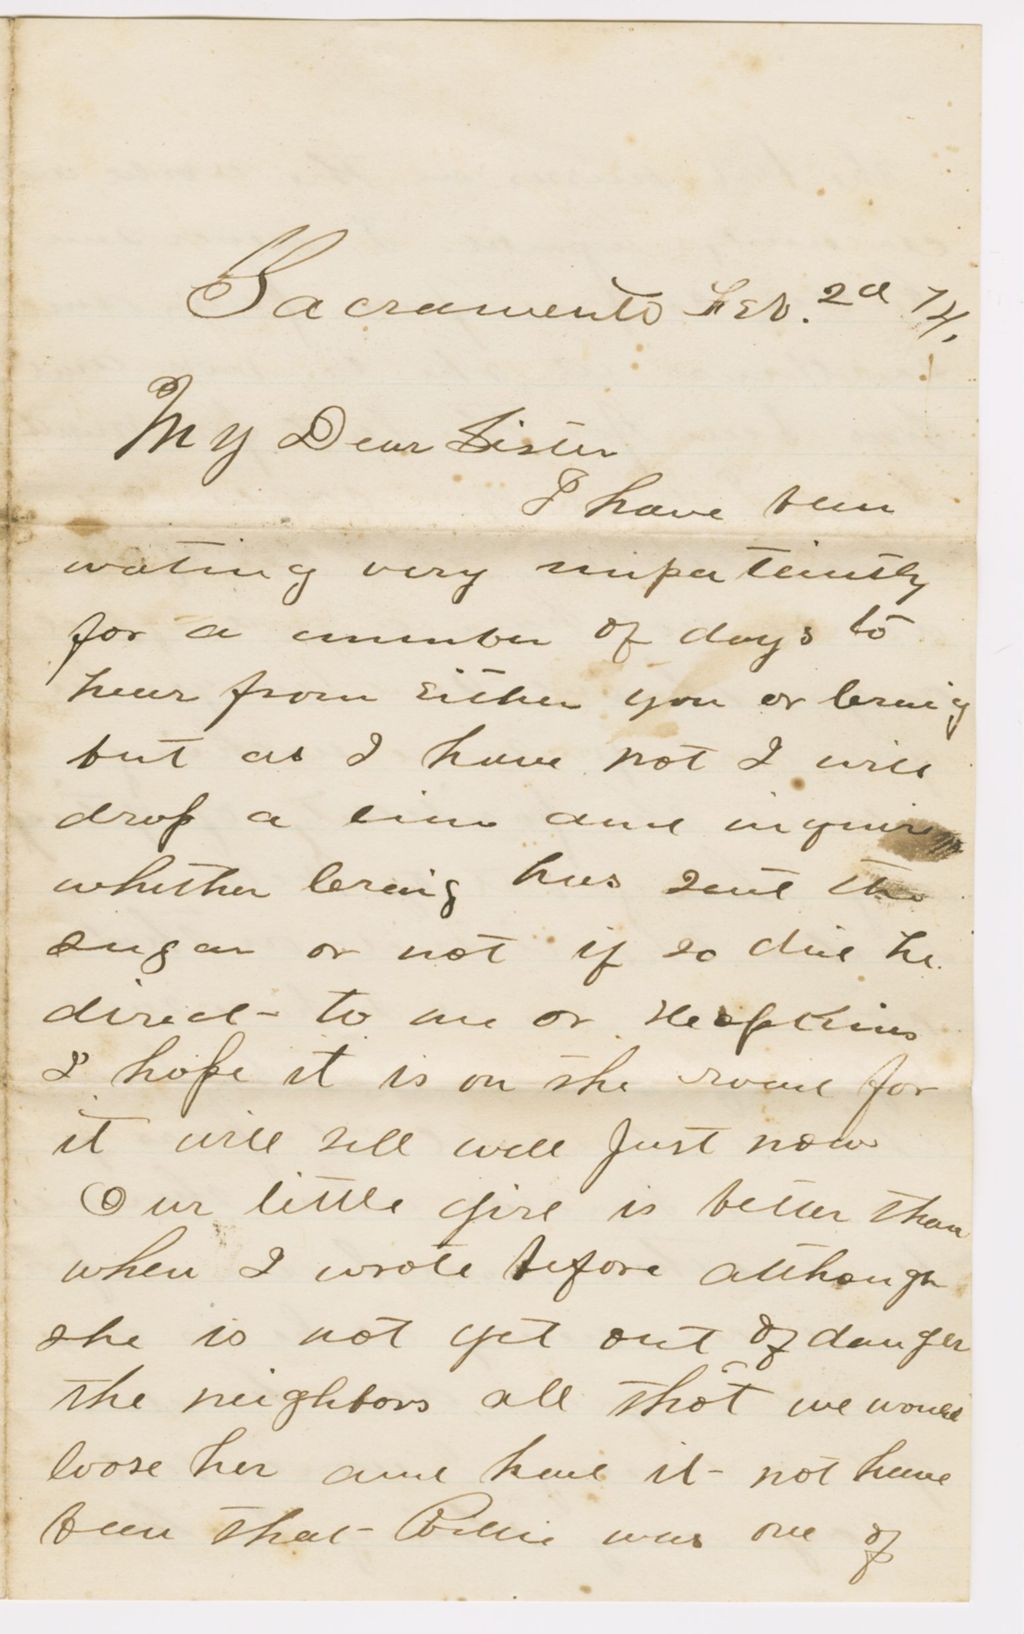 Sacramento Feb. 2d 74,
My Dear Sister
I have been
wating very impatiently
for a number of days to
hear from either you or Craig
but as I have not I will
drop a line and inquire
whether Craig has sent the
sugar or not if so did he
direct to me or Hopkins
I hope it is on the road for
it will sell well just now
Our little girl is better than
when I wrote before although
she is not yet out of danger
the neighbors all thot we would
loose her and had it not have
been that was one of